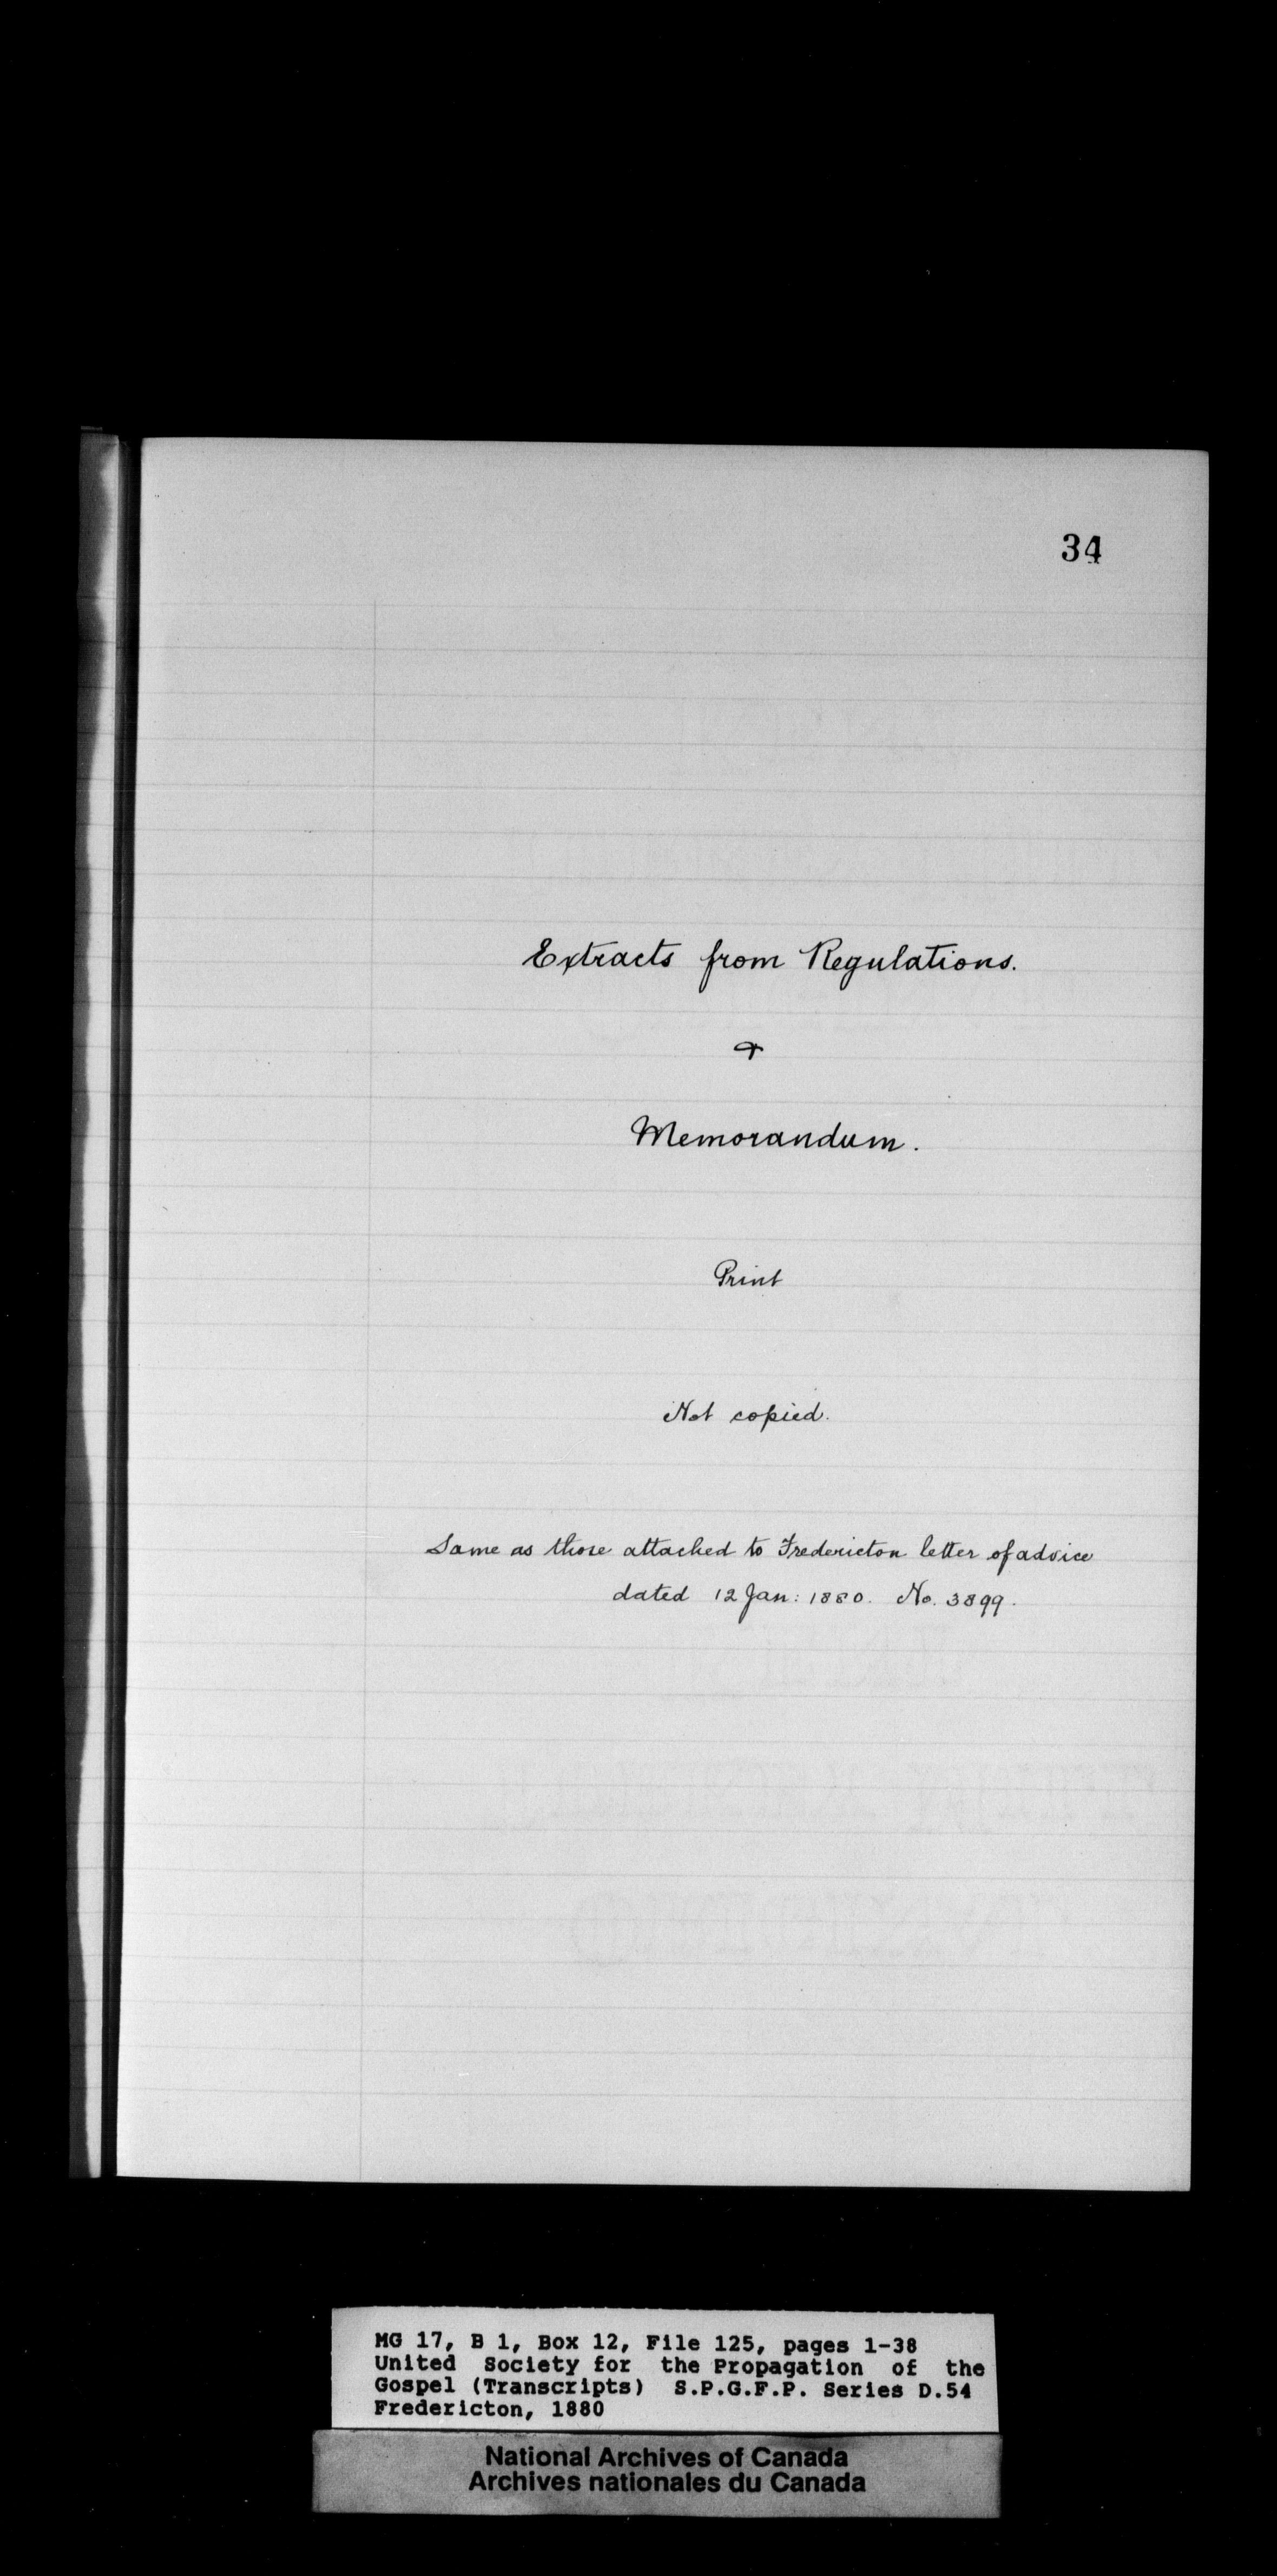 34
Extracts from Regulations.
&
Memorandum.
Print
Not copied.
Same as those attached to Fredericton letter of advice
dated 12 Jan: 1880. No. 3899.
MG 17, B 1, Box 12, File 125, pages 1-38
United Society for the Propagation of the
Gospel (Transcripts) S.P.G.F.P. Series D.54
Fredericton, 1880
National Archives of Canada
Archives nationales du Canada